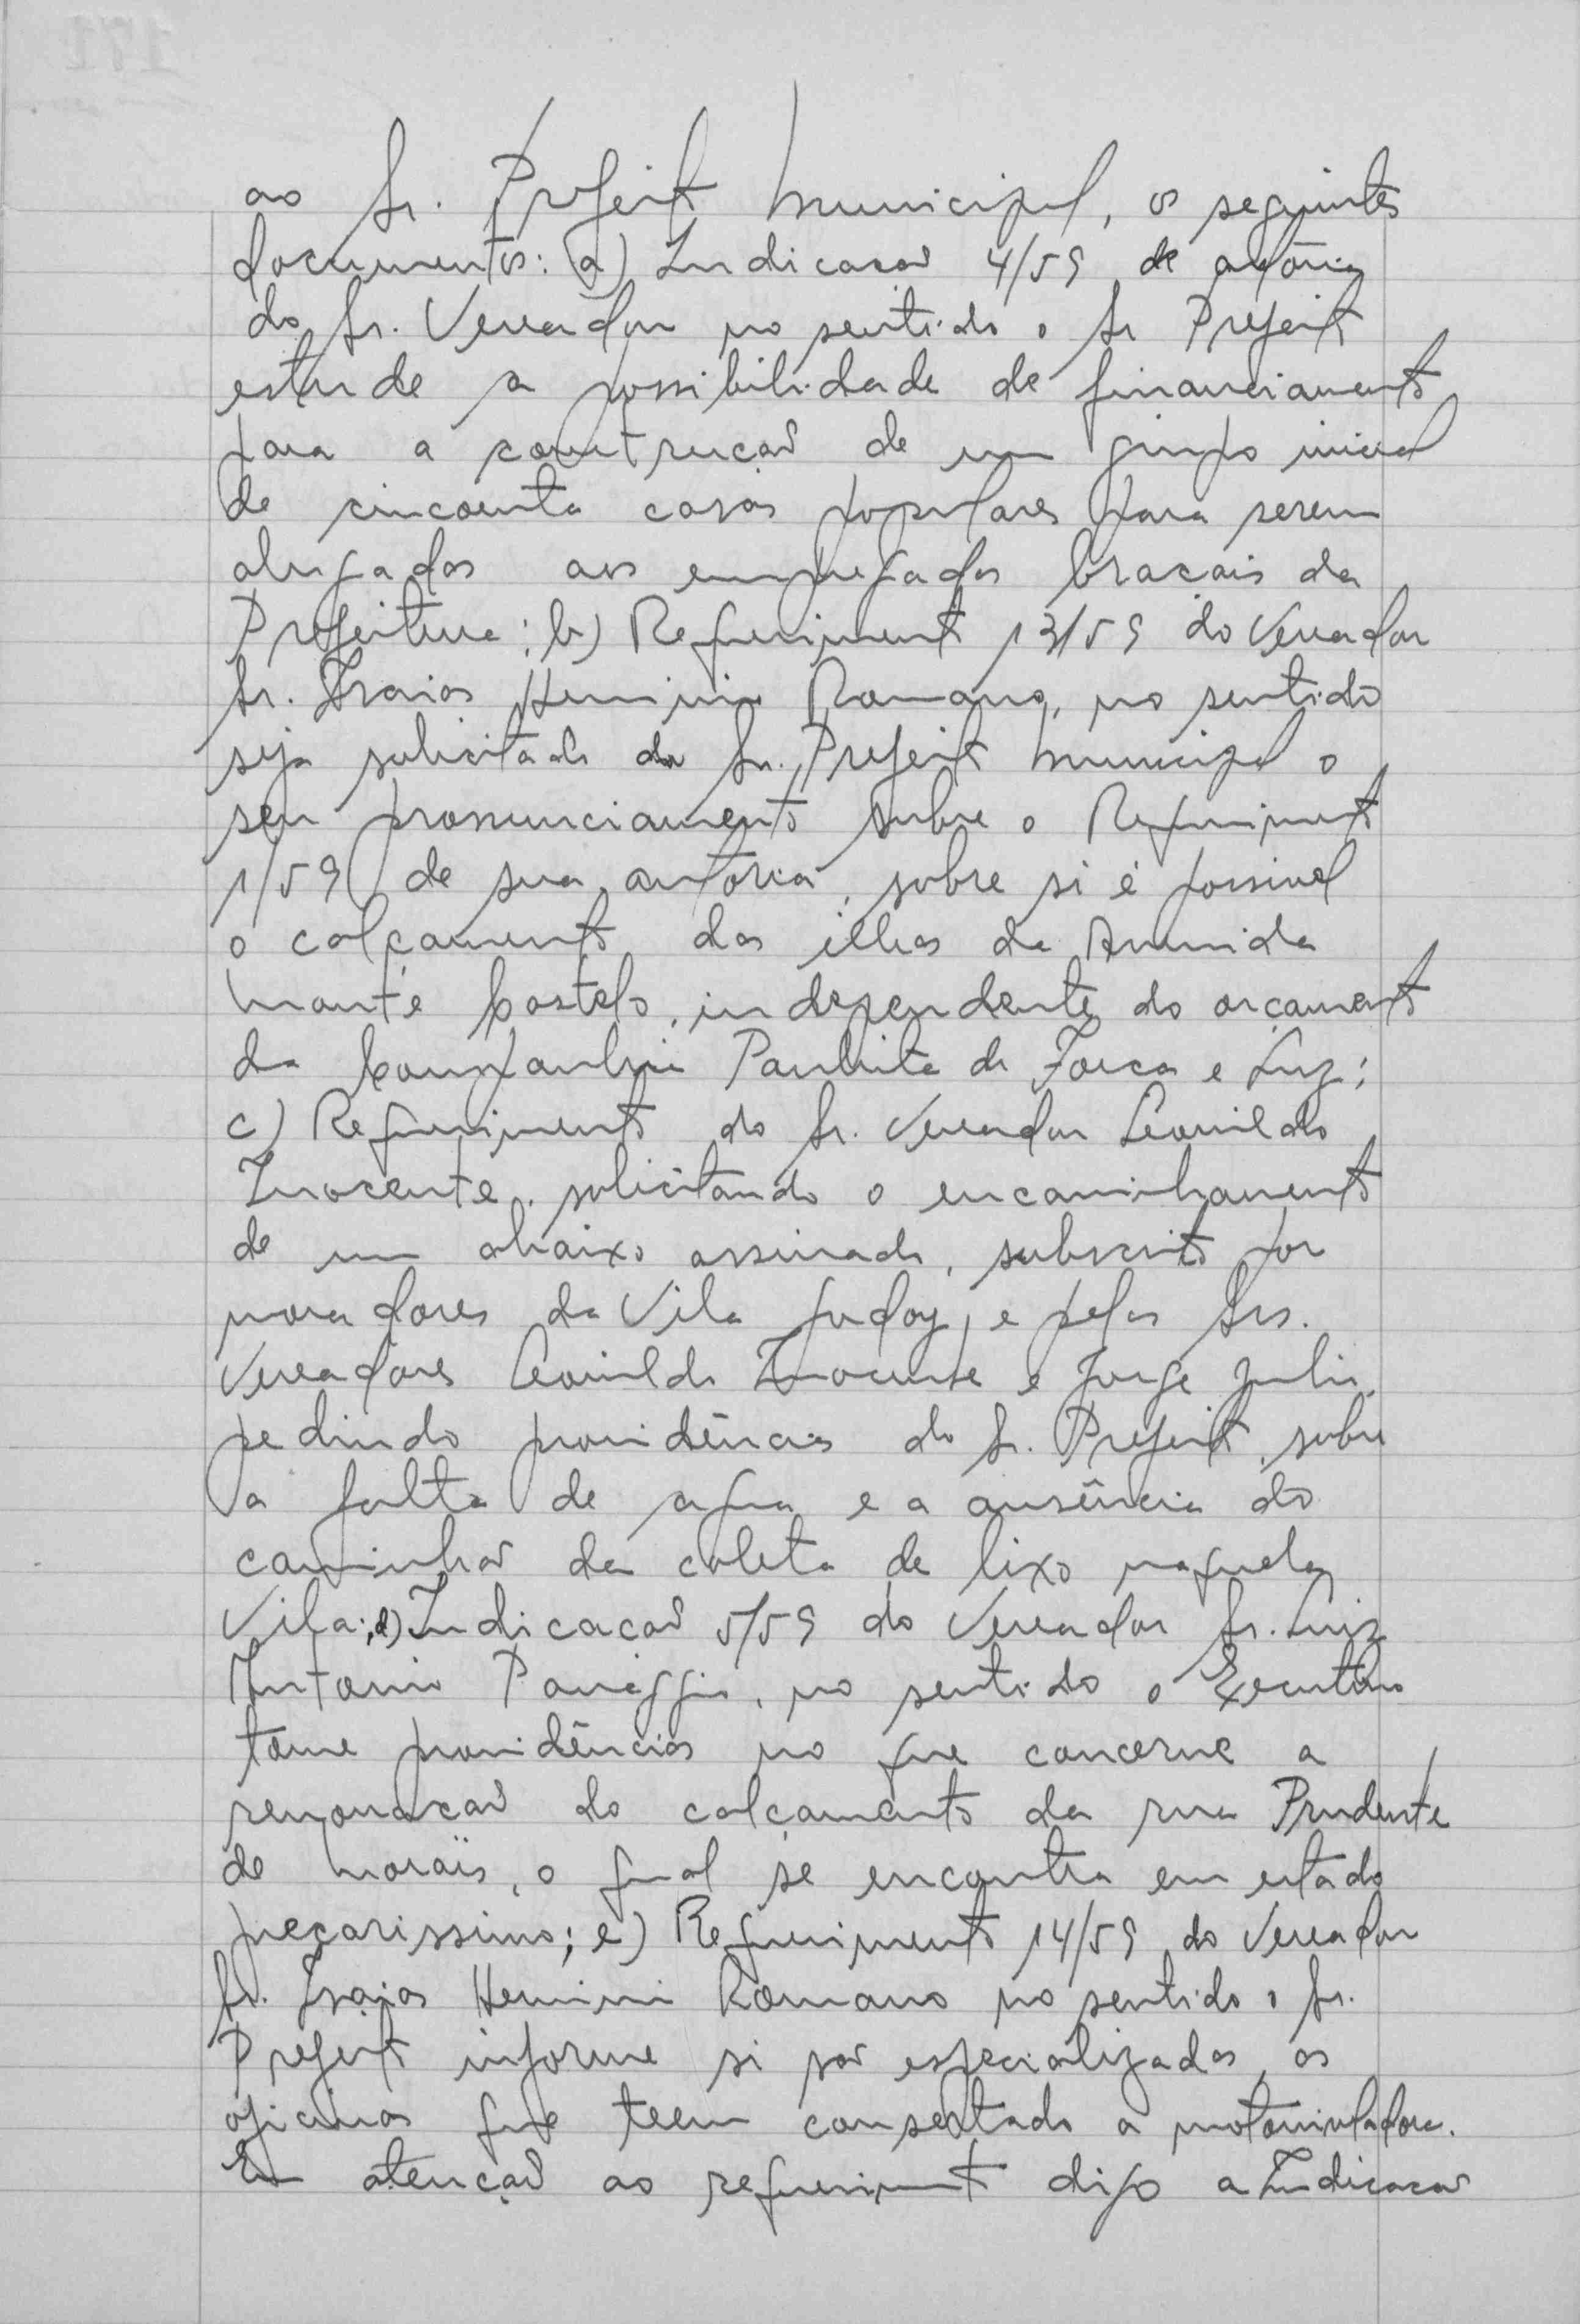 ao Sr. Prefeito Municipal, os seguintes
documentos: a) Indicação 4/59 de autoria
do Sr. Vereador no sentido o Sr Prefeito
estude a possibilidade de financiamento
para a construção de um grupo inicial
de cincoenta casas populares para serem
alugadas aos empregados braçais da
Prefeitura; b) Requerimento 13/59 do Vereador
Sr. Isaias Herminio Romano, no sentido
seja solicitado do Sr. Prefeito Municipal o
seu pronunciamento sobre o Requerimento
1/59 de sua autoria, sobre si é possivel
o calçamento das ilhas da Avenida
Monte Castelo, independente do orçamento
da Companhia Paulista de Força e Luz;
c) Requerimento do Sr. Vereador Leonildo
Inocente, solicitando o encaminhamento
de um abaixo assinado, subscrito por
moradores da Vila Godoy, e pelos Srs.
Vereadores Leonildo Inocente e Jorge Julio,
pedindo providências do Sr. Prefeito, sobre
a falta de agua e a ausência do
caminhão da coleta de lixo naquela
Vila; d) Indicação 5/59 do Vereador Sr. Luiz
Antonio Panaggio, no sentido o Executivo
tome providências no que concerne a
renovação do calçamento da rua Prudente
de Morais, o qual se encontra em estado
precarissimo; e) Requerimento 14/59 do Vereador
Sr. Isaias Herminio Romano no sentido o Sr.
Prefeito informe si são especializadas, as
oficinas que teem consertado a motoniveladora.
Em atenção ao requerimento digo a Indicação